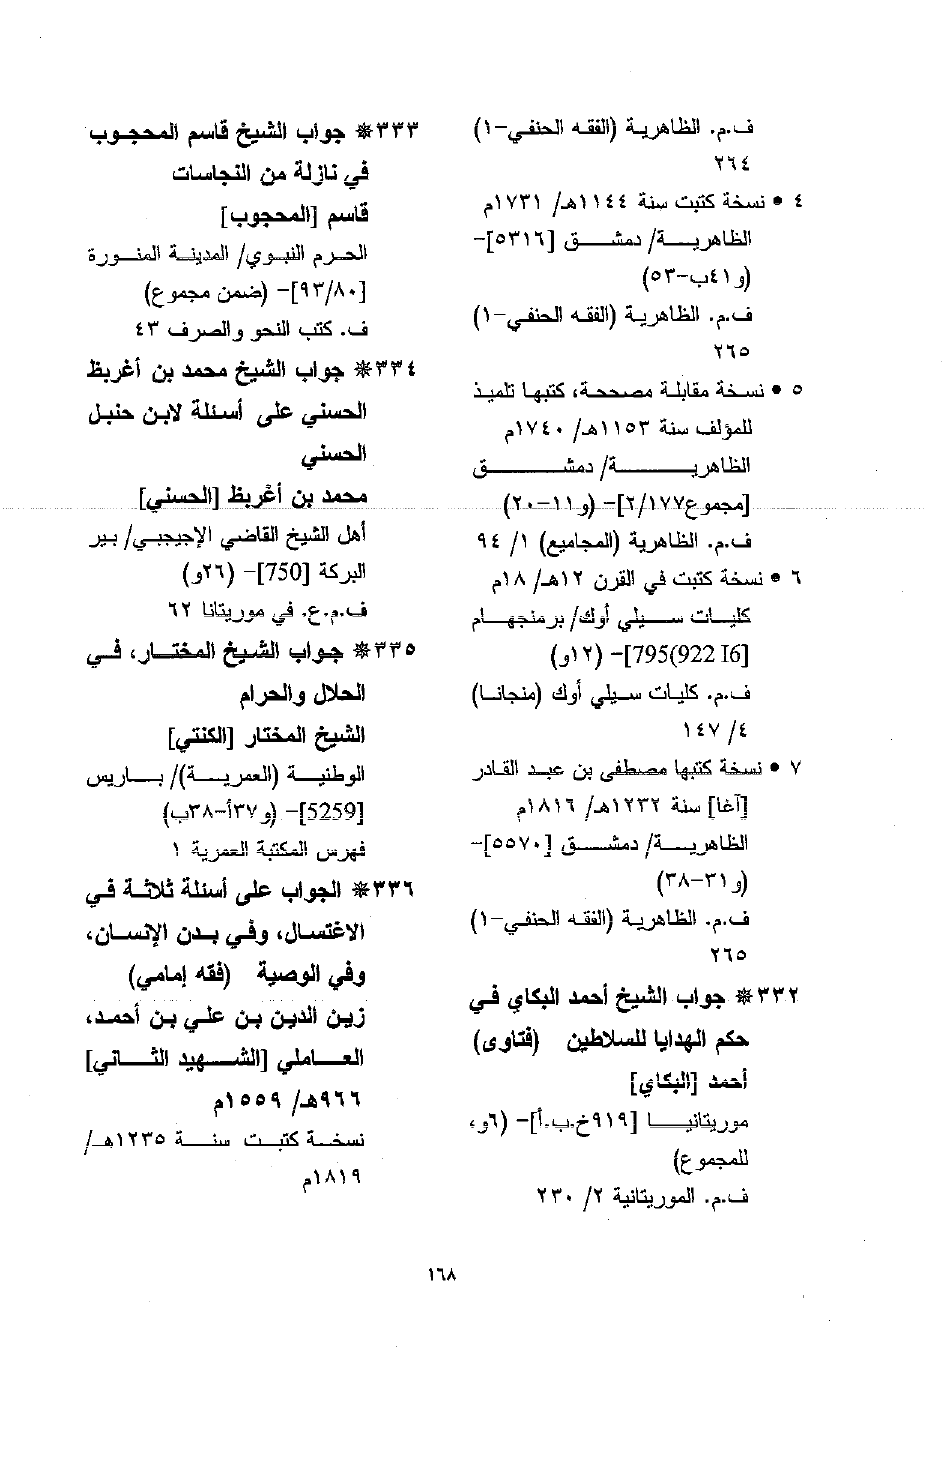 ف.م. الظاهرية (الفقه الحنفي-١)
٢٦٤
٤ • نسخة كتبت سنة ١١٤٤هـ/ ١٧٣١م
الظاهرية/ دمشق [٥٣١٦]-
(و٤١ب-٥٣)
ف.م. الظاهرية (الفقه الحنفي-١)
٢٦٥
٥ • نسخة مقابلة مصححة، كتبها تلميذ
للمؤلف سنة ١١٥٣هـ/ ١٧٤٠م
الظاهرية/ دمشق
[مجموع٢/١٧٧]- (و١١-٢٠)
ف.م. الظاهرية (المجاميع) ١/ ٩٤
٦ • نسخة كتبت في القرن ١٢هـ/ ١٨م
كليات سيلي أوك/ برمنجهام
[795(922 I6]- (١٢و)
ف.م. كليات سيلي أوك (منجانا)
٤/ ١٤٧
٧ • نسخة كتبها مصطفى بن عبد القادر
[آغا] سنة ١٢٣٢هـ/ ١٨١٦م
الظاهرية/ دمشق [٥٥٧٠]-
(و٣١-٣٨)
ف.م. الظاهرية (الفقه الحنفي-١)
٢٦٥
٣٣٢* جواب الشيخ أحمد البكاي في
حكم الهدايا للسلاطين (فتاوى)
أحمد [البكاي]
موريتانيا [٩١٩خ.ب.أ]- (٦و،
للمجموع)
ف.م. الموريتانية ٢/ ٢٣٠
٣٣٣* جواب الشيخ قاسم المحجوب
في نازلة من النجاسات
قاسم [المحجوب]
الحرم النبوي/ المدينة المنورة
[٩٣/٨٠]- (ضمن مجموع)
ف. كتب النحو والصرف ٤٣
٣٣٤* جواب الشيخ محمد بن أغربظ
الحسني على أسئلة لابن حنبل
الحسني
محمد بن أغربظ [الحسني]
أهل الشيخ القاضي الإجيجبي/ بير
البركة [750]- (٢٦و)
ف.م.ع. في موريتانا ٦٢
٣٣٥* جواب الشيخ المختار، في
الحلال والحرام
الشيخ المختار [الكنتي]
الوطنية (العمرية)/ باريس
[5259]- (و٣٧أ-٣٨ب)
فهرس المكتبة العمرية ١
٣٣٦* الجواب على أسئلة ثلاثة في
الاغتسال، وفي بدن الإنسان،
وفي الوصية (فقه إمامي)
زين الدين بن علي بن أحمد،
العاملي [الشهيد الثاني]
٩٦٦هـ/ ١٥٥٩م
نسخة كتبت سنة ١٢٣٥هـ/
١٨١٩م
١٦٨